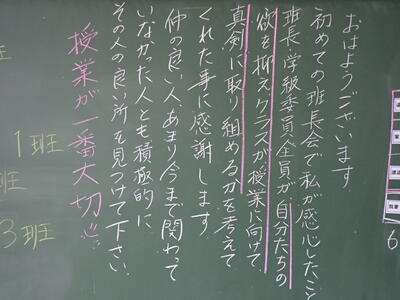 おはようございます。
初めての班長会で私が感心したこ
班長、学級委員全員が自分たちの
欲も抑えクラスが授業に向けて
真剣に取り組めるかを考えて
くれた事に感謝します。
仲の良い人、あまり今まで関わって
いなかった人とも積極的に
その人の良い所を見つけて下さい。
授業が一番大切!!
班
1班
班
3班
6